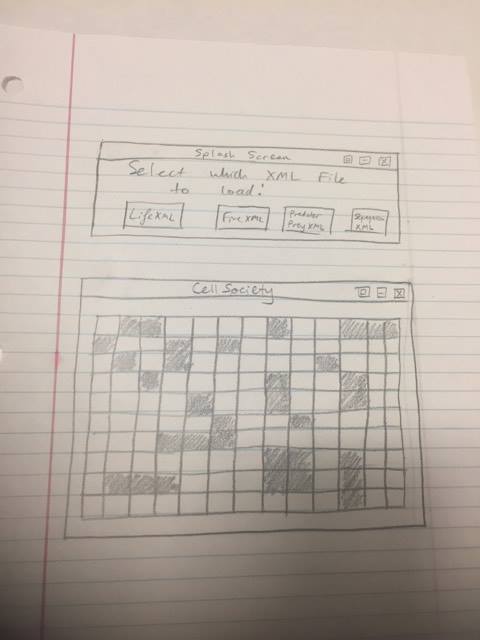 Splash Screen
Select which XML File
to load:
Life XML
Fire XML
Predator
Prey XML
XML
Cell Society